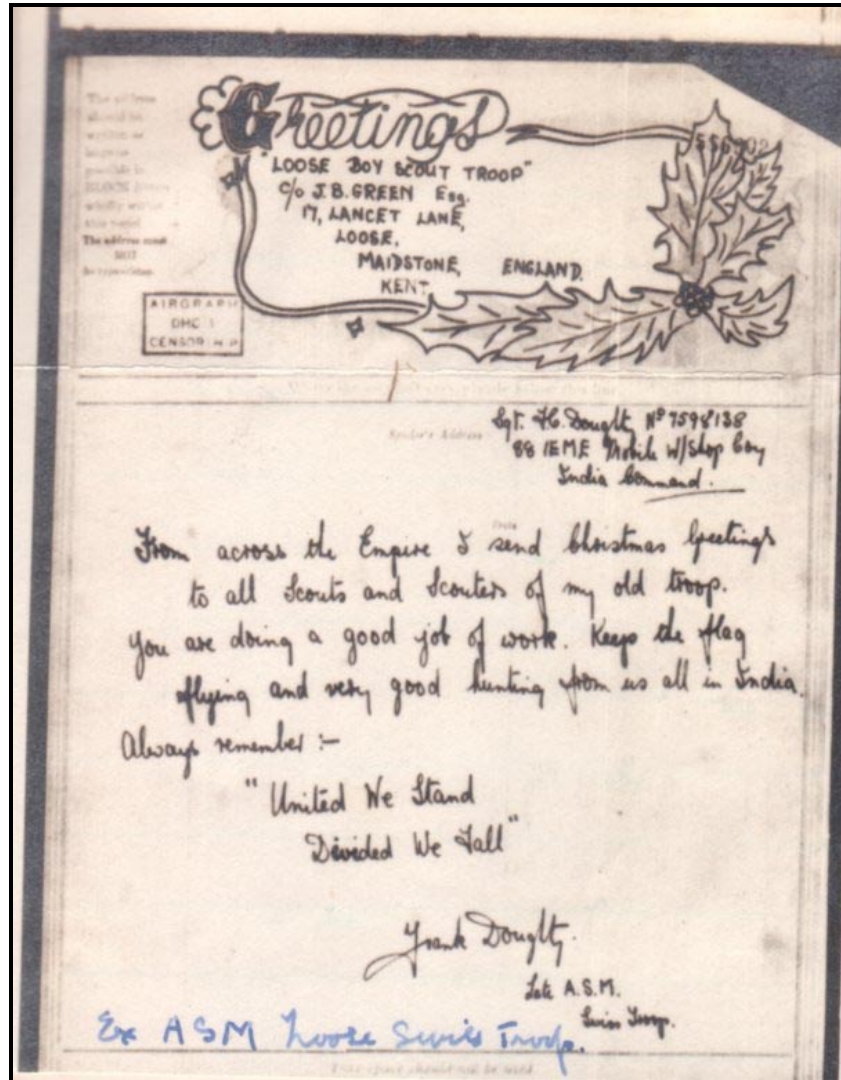 The address
should be
written as
large as
possible in
BLOCK letters
wholly within
this panel
The address must
NOT
be typewritten
Greetings
556902
"LOOSE BOY SCOUT TROOP"
C/o J.B.GREEN Esq.
17, LANCET LANE,
LOOSE,
MAIDSTONE, ENGLAND.
KENT
AIRGRAPH
CENSOR
Sender's Address
Sgt. H. Doughty Nº 7598138
88 IEME Mobile W/Shop Coy
India Command.
Date
From across the Empire I send Christmas Greetings
to all Scouts and Scouters of my old troop.
You are doing a good job of work. Keep the flag
flying and very good hunting from us all in India.
Always remember :-
"United We Stand
Divided We Fall"
Frank Doughty.
Late A.S.M.
Swiss Troop.
Ex ASM Loose Swiss Troop.